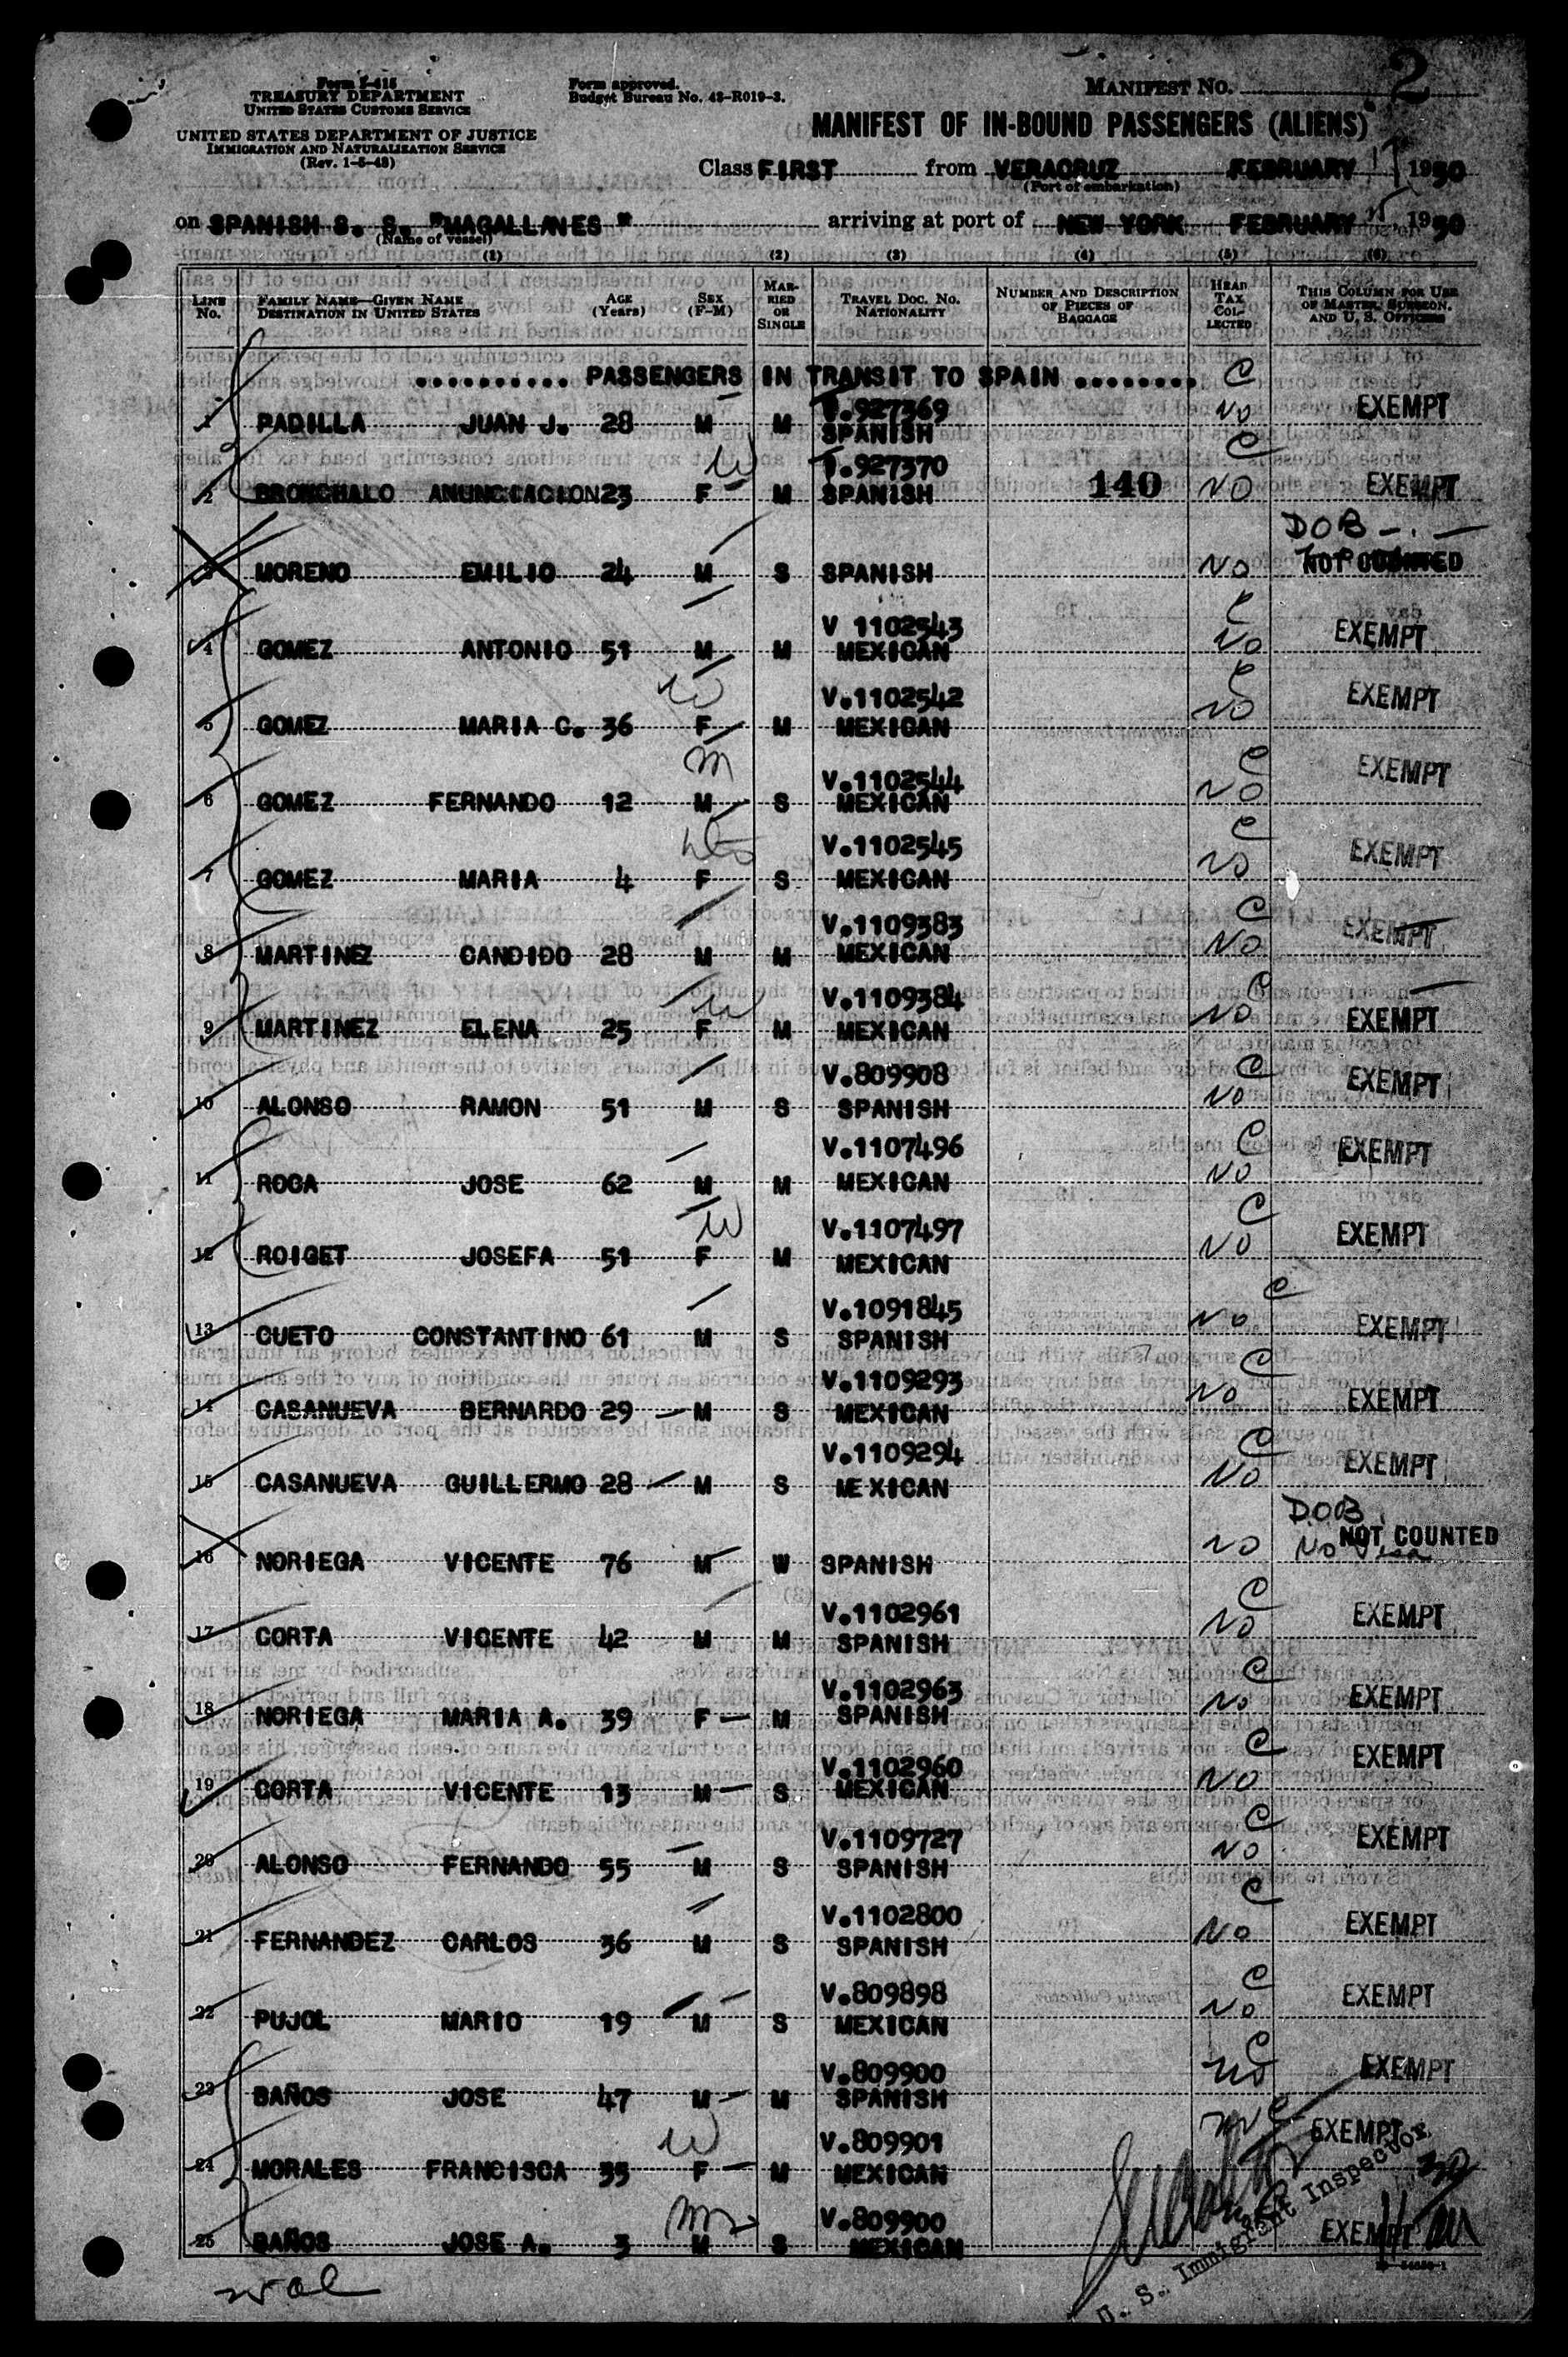 2
Form I-415
TREASURY DEPARTMENT
UNITED STATES CUSTOMS SERVICE
UNITED STATES DEPARTMENT OF JUSTICE
IMMIGRATION AND NATURALIZATION SERVICE
(Rev. 1-5-48)
Form approved.
Budget Bureau No. 43-R019-3.
MANIFEST NO.
MANIFEST OF IN-BOUND PASSENGERS (ALIENS)
Class FIRST from VERACRUZ FEBRUARY 1950
(Port of embarkation)
on SPANISH S. S. "MAGALLANES" arriving at port of NEW YORK FEBRUARY , 1950
(Name of vessel)
(1) (2) (3) (4) (5) (6)
LINE No. FAMILY NAME—GIVEN NAME DESTINATION IN UNITED STATES AGE (Years) SEX (F-M) MARRIED OR SINGLE TRAVEL DOC. NO. NATIONALITY NUMBER AND DESCRIPTION OF PIECES OF BAGGAGE HEAD TAX COLLECTED THIS COLUMN FOR USE OF MASTER, SURGEON, AND U. S. OFFICERS
.......... PASSENGERS IN TRANSIT TO SPAIN ........ C
1 PADILLA JUAN J. 28 M M T.927369 SPANISH NO EXEMPT
2 BRONCHALO ANUNCIACION 23 F M T.927370 SPANISH 140 C NO EXEMPT
3 MORENO EMILIO 24 M S SPANISH NO DOB NOT COUNTED
4 GOMEZ ANTONIO 51 M M V 1102543 MEXICAN C NO EXEMPT
5 GOMEZ MARIA C. 36 F M V.1102542 MEXICAN C NO EXEMPT
6 GOMEZ FERNANDO 12 M S V.1102544 MEXICAN C NO EXEMPT
7 GOMEZ MARIA 4 F S V.1102545 MEXICAN C NO EXEMPT
8 MARTINEZ CANDIDO 28 M M V.1109383 MEXICAN C NO EXEMPT
9 MARTINEZ ELENA 25 F M V.1109384 MEXICAN C NO EXEMPT
10 ALONSO RAMON 51 M S V.809908 SPANISH C NO EXEMPT
11 ROCA JOSE 62 M M V.1107496 MEXICAN C NO EXEMPT
12 ROIGET JOSEFA 51 F M V.1107497 MEXICAN C NO EXEMPT
13 CUETO CONSTANTINO 61 M S V.1091845 SPANISH C NO EXEMPT
14 CASANUEVA BERNARDO 29 M S V.1109293 MEXICAN C NO EXEMPT
15 CASANUEVA GUILLERMO 28 M S V.1109294 MEXICAN C NO EXEMPT
16 NORIEGA VICENTE 76 M W SPANISH NO DOB NOT COUNTED No Visa
17 CORTA VICENTE 42 M M V.1102961 SPANISH C NO EXEMPT
18 NORIEGA MARIA A. 39 F M V.1102963 SPANISH C NO EXEMPT
19 CORTA VICENTE 13 M S V.1102960 MEXICAN C NO EXEMPT
20 ALONSO FERNANDO 55 M S V.1109727 SPANISH C NO EXEMPT
21 FERNANDEZ CARLOS 36 M S V.1102800 SPANISH C NO EXEMPT
22 PUJOL MARIO 19 M S V.809898 MEXICAN C NO EXEMPT
23 BAÑOS JOSE 47 M M V.809900 SPANISH C NO EXEMPT
24 MORALES FRANCISCA 35 F M V.809901 MEXICAN EXEMPT
25 BAÑOS JOSE A. 3 M S V.809900 MEXICAN EXEMPT
U. S. Immigrant Inspector